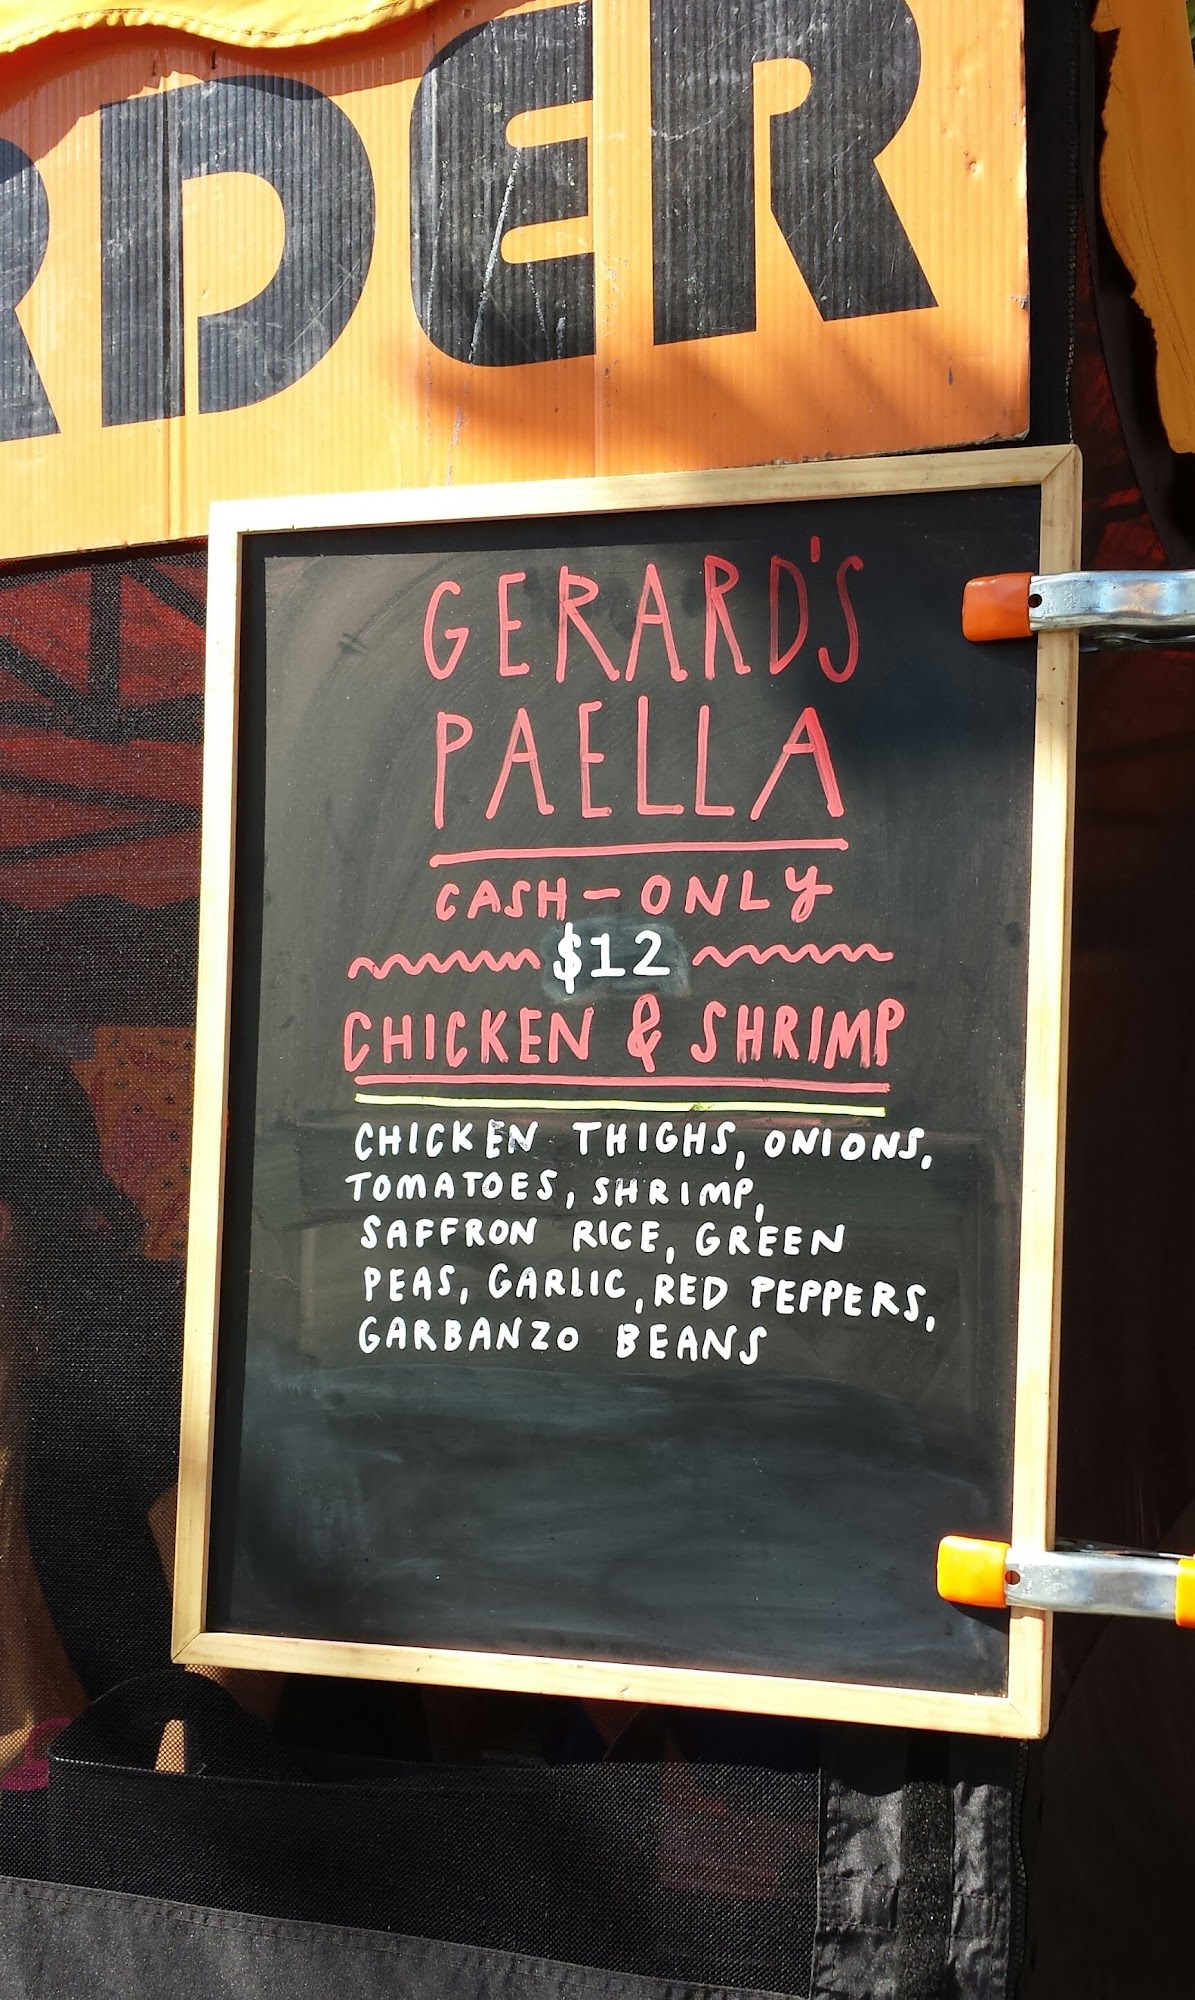 RDER
GERARD'S
PAELLA
CASH-ONLY
$12
CHICKEN & SHRIMP
CHICKEN THIGHS, ONIONS,
TOMATOES, SHRIMP,
SAFFRON RICE, GREEN
PEAS, GARLIC, RED PEPPERS,
GARBANZO BEANS